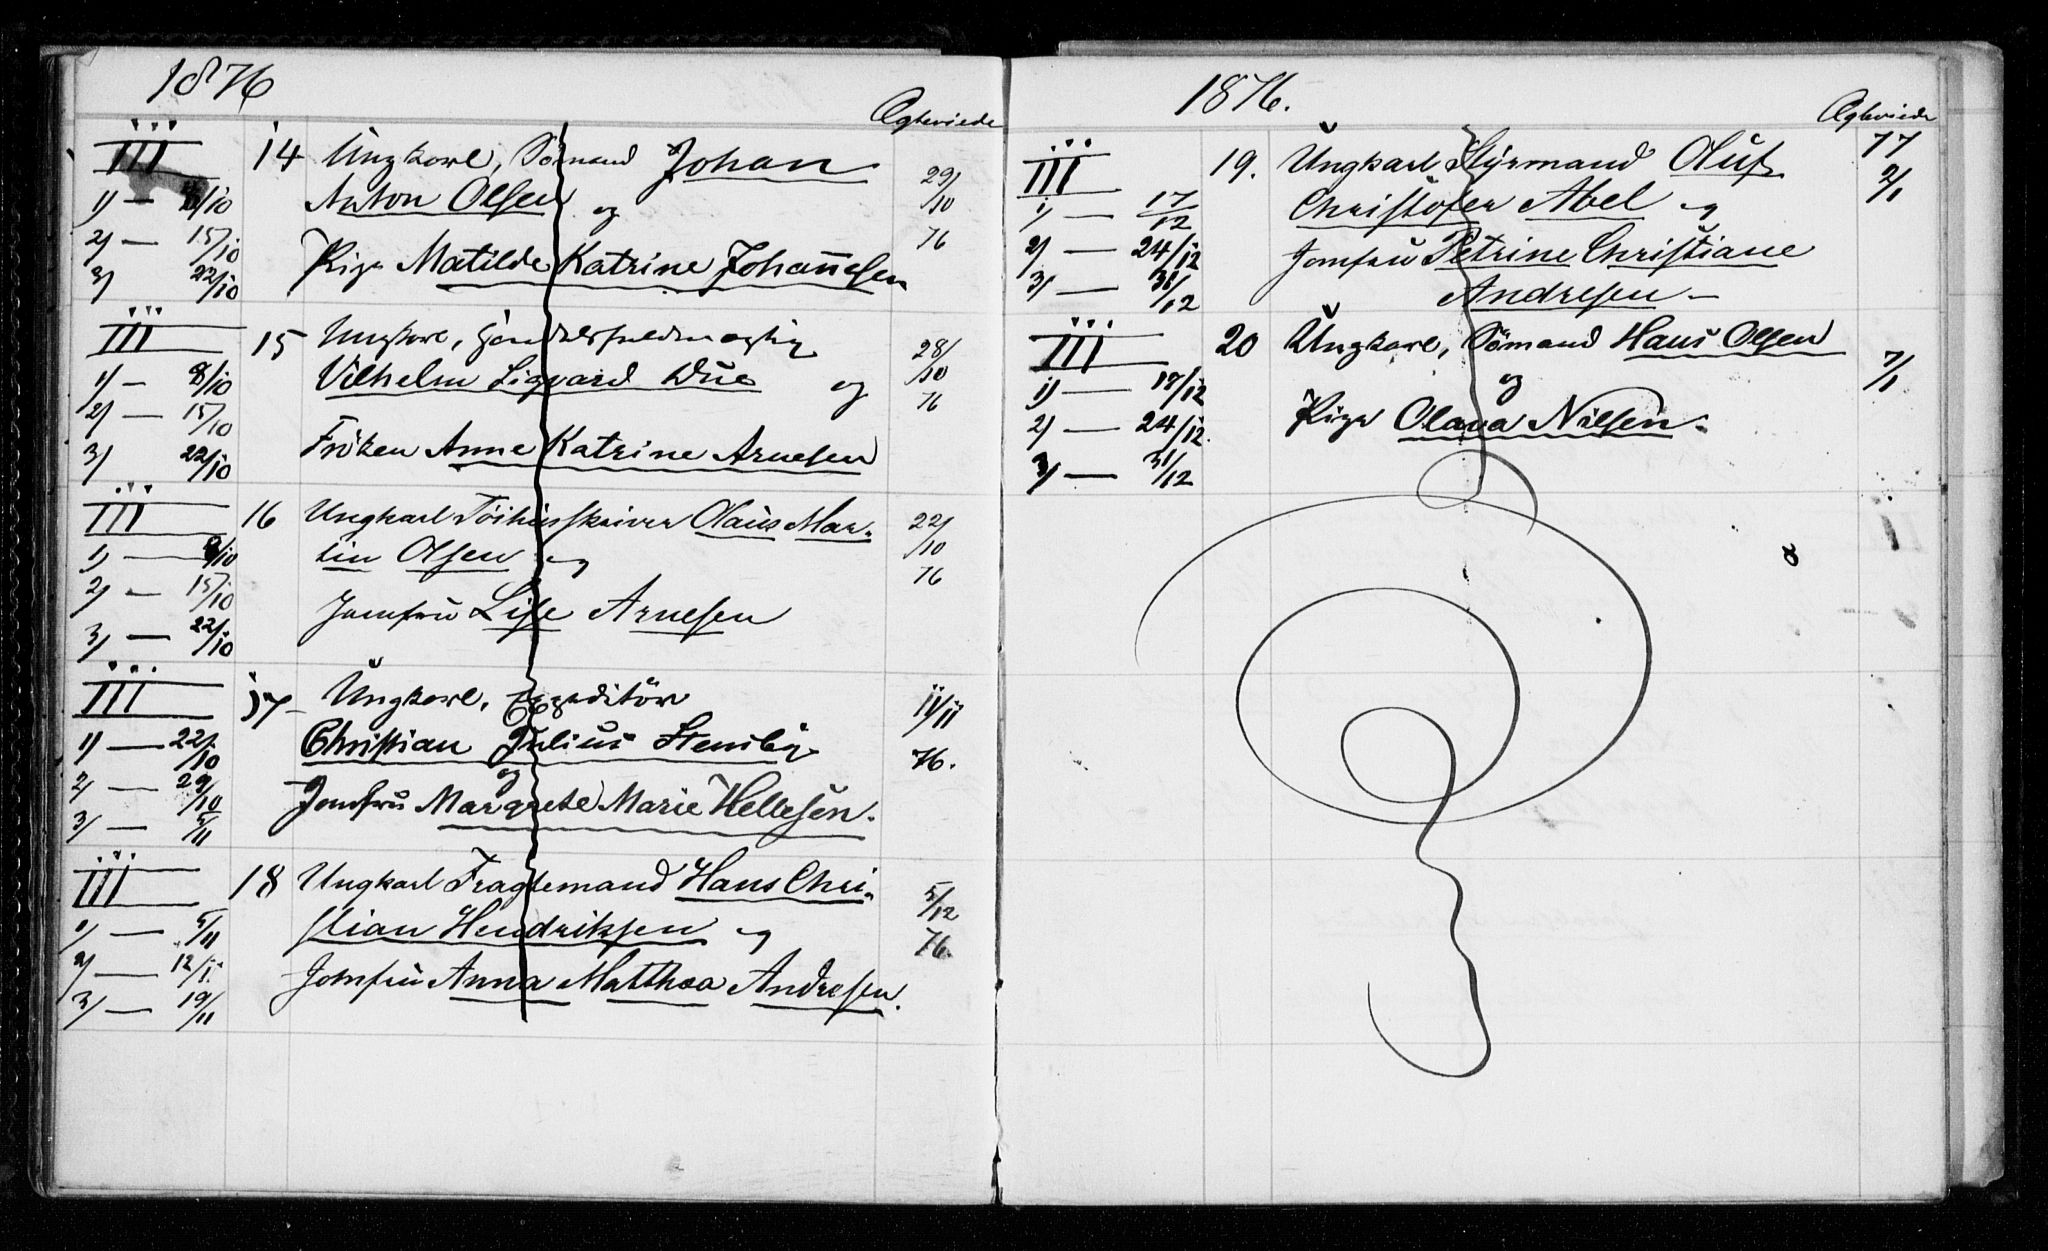 1876
Ægteviede
III 14 Ungkarl, Sömand Johan
1) — 8/10 Anton Olsen og 29/10 76
2) — 15/10
3) 22/10 Pige Matilde Katrine Johannesen
III 15 Ungkarl, Handelsfuldmægtig
1) — 8/10 Vilhelm Sigvard Due og 28/10 76
2) — 15/10
3) 22/10 Fröken Anne Katrine Arnesen
III 16 Ungkarl Töihusskriver Olaus Mar-
1) — 8/10 tin Olsen og 22/10 76
2) — 15/10
3) — 22/10 Jomfru Lise Arnesen
III 17 Ungkarl, Expeditör
1) — 22/10 Christian Julius Stensby 11/11 76.
og
2) — 29/10 Jomfru Margrete Marie Hellesen.
3) — 5/11
III 18 Ungkarl Fragtemand Hans Chri-
1) — 5/11 stian Hendriksen og 5/12 76
2) — 12/11 Jomfru Anna Matthea Andresen.
3) — 19/11
1876.
Ægteviede
III 19. Ungkarl Styrmand Oluf 77
1) — 17/12 Christofer Abel og 2/1
2) — 24/12 Jomfru Petrine Christiane
3) — 31/12 Andresen —
III 20 Ungkarl, Sömand Hans Olsen
1) — 17/12 og 7/1
2) — 24/12. Pige Olava Nilsen.
3) — 31/12